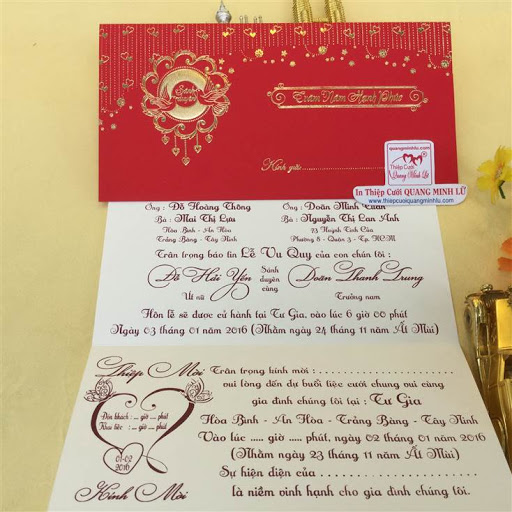 Sánh duyên
Trăm Năm Hạnh Phúc
Kính gửi:
quangminhlu.com
Thiệp Cưới
Quang Minh Lữ
In Thiệp Cưới QUANG MINH LỮ
www.thiepcuoiquangminhlu.com
Ông : Đỗ Hoàng Thông
Bà : Mai Thị Lựu
Hòa Bình - An Hòa
Trảng Bàng - Tây Ninh
Ông : Doãn Minh Tuấn
Bà : Nguyễn Thị Lan Anh
23 Huỳnh Tịnh Của
Phường 8 - Quận 3 - Tp. HCM
Trân trọng báo tin Lễ Vu Quy của con chúng tôi :
Đỗ Hải Yến
Út nữ
Sánh duyên cùng
Doãn Thanh Trung
Trưởng nam
Hôn lễ sẽ được cử hành tại Tư Gia, vào lúc 6 giờ 00 phút
Ngày 03 tháng 01 năm 2016 (Nhằm ngày 24 tháng 11 năm Ất Mùi)
Thiệp Mời
Đón khách : ... giờ ... phút
Khai tiệc : ... giờ ... phút
01-02
2016
Kính Mời
Trân trọng kính mời :
vui lòng đến dự buổi tiệc cưới chung vui cùng
gia đình chúng tôi tại : Tư Gia
Hòa Bình - An Hòa - Trảng Bàng - Tây Ninh
Vào lúc ..... giờ ... phút, ngày 02 tháng 01 năm 2016
(Nhằm ngày 23 tháng 11 năm Ất Mùi)
Sự hiện diện của
là niềm vinh hạnh cho gia đình chúng tôi.